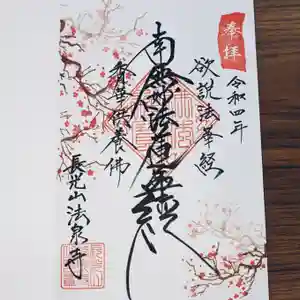 奉拝
令和四年
欲說法華経
南無妙法蓮華経
香華供養佛
長光山法泉寺